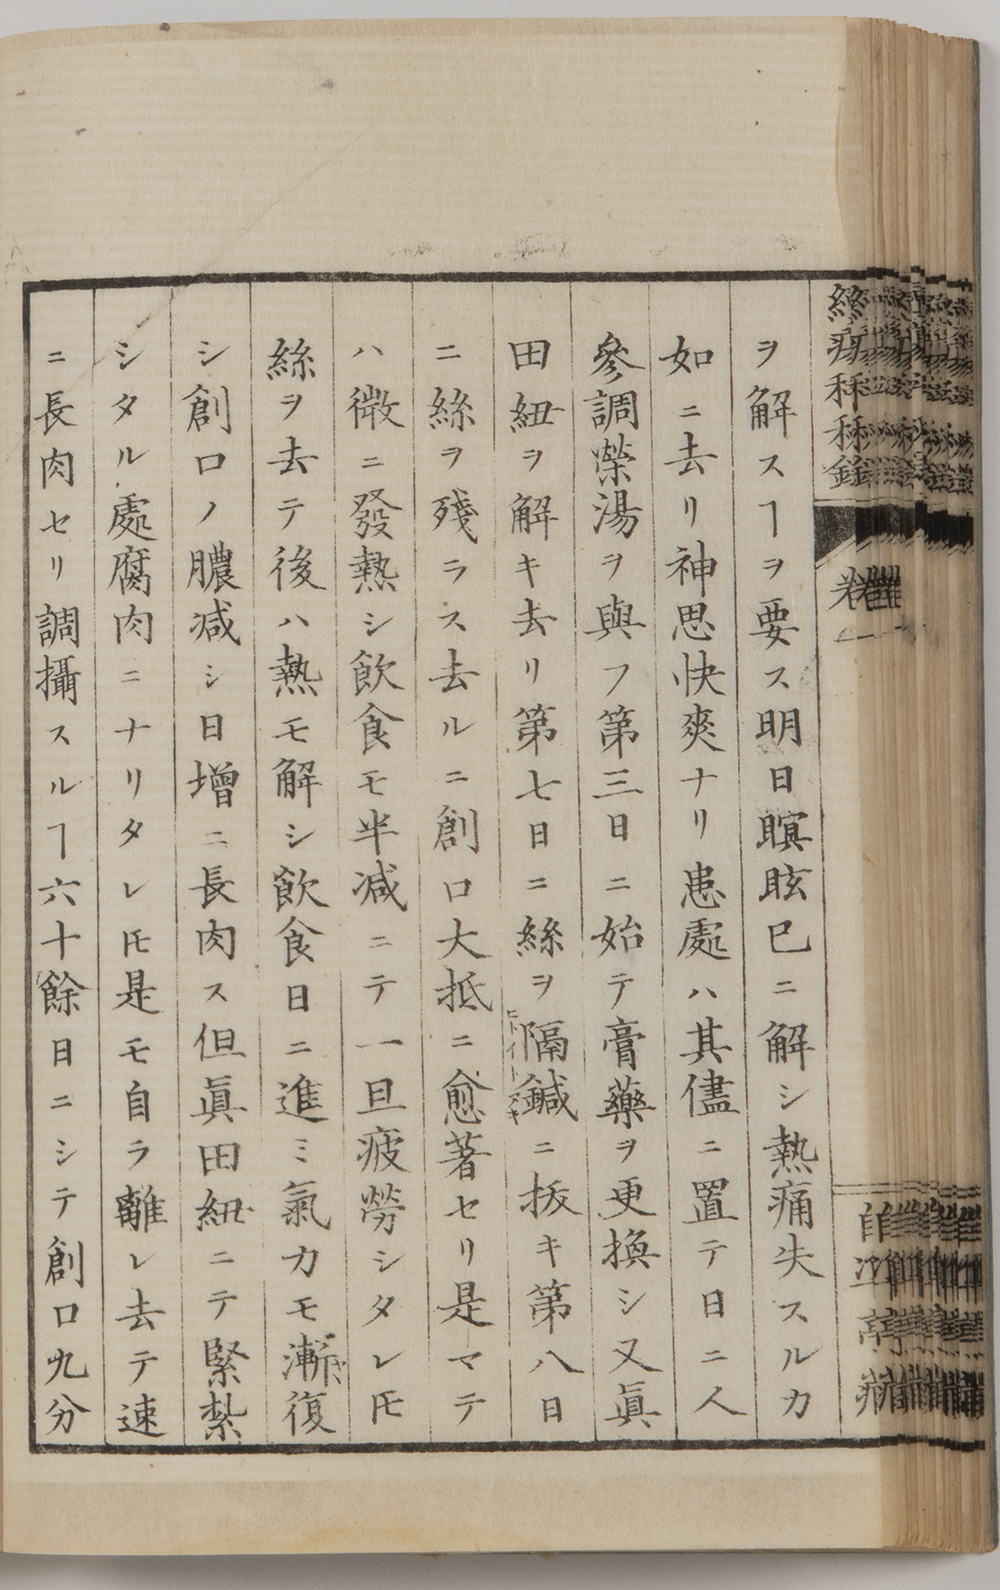 ヲ解スヿヲ要ス明日瞑眩已ニ解シ熱痛失スルカ
如ニ去リ神思快爽ナリ患處ハ其儘ニ置テ日ニ人
參調榮湯ヲ與フ第三日ニ始テ膏藥ヲ更換シ又眞
田紐ヲ解キ去リ第七日ニ絲ヲ隔鍼ニ拔キ第八日
ニ絲ヲ殘ラス去ルニ創口大抵ニ愈著セリ是マテ
ハ微ニ發熱シ飮食モ半减ニテ一旦疲勞シタレ𪜈
絲ヲ去テ後ハ熱モ解シ飮食日ニ進ミ氣力モ漸復
シ創口ノ膿减シ日增ニ長肉ス但眞田紐ニテ緊紮
シタル處腐肉ニナリタレ𪜈是モ自ラ離レ去テ速
ニ長肉セリ調攝スルヿ六十餘日ニシテ創口九分